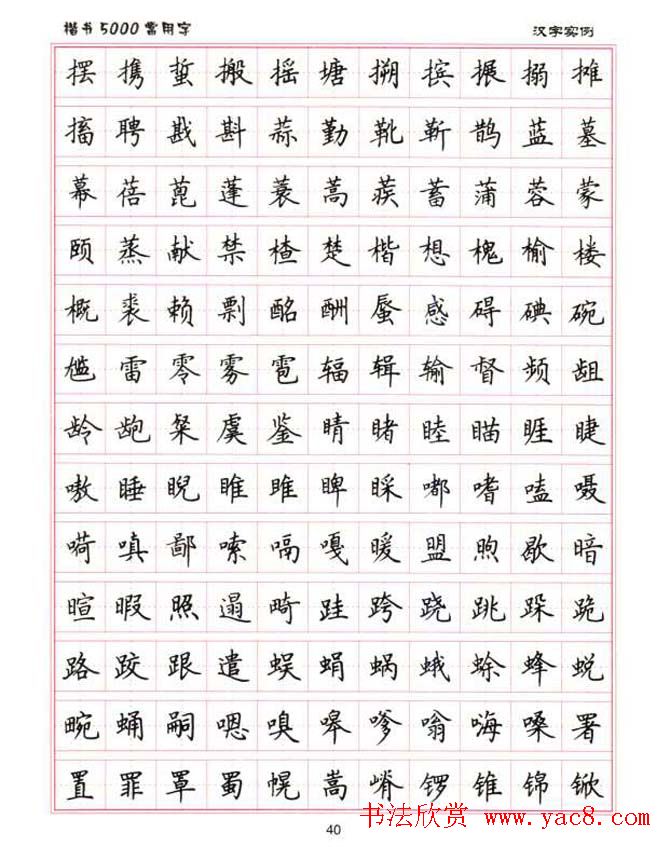 楷书5000常用字 汉字实例
摆 携 蜇 搬 摇 塘 搠 摈 搌 搦 摊
搐 聘 戡 斟 蒜 勤 靴 靳 鹊 蓝 墓
幕 蓓 蓖 蓬 蓑 蒿 蒺 蓄 蒲 蓉 蒙
颐 蒸 献 禁 楂 楚 楷 想 槐 榆 楼
概 裘 赖 剽 酩 酬 蜃 感 碍 碘 碗
尴 雷 零 雾 雹 辐 辑 输 督 频 龃
龄 龅 粲 虞 鉴 睛 睹 睦 瞄 睚 睫
嗷 睡 睨 睢 雎 睥 睬 嘟 嗜 嗑 嗫
嗬 嗔 鄙 嗦 嗝 嘎 暖 盟 煦 歇 暗
暄 暇 照 遢 畸 跬 跨 跷 跳 跺 跪
路 跤 跟 遣 蜈 蜗 蛾 蜍 蜂 蜕
畹 蛹 嗣 嗯 嗅 嗥 嗲 嗡 嗨 嗓 署
置 罪 罩 蜀 幌 嵩 嵴 锣 锥 锦 锨
40
书法欣赏 www.yac8.com